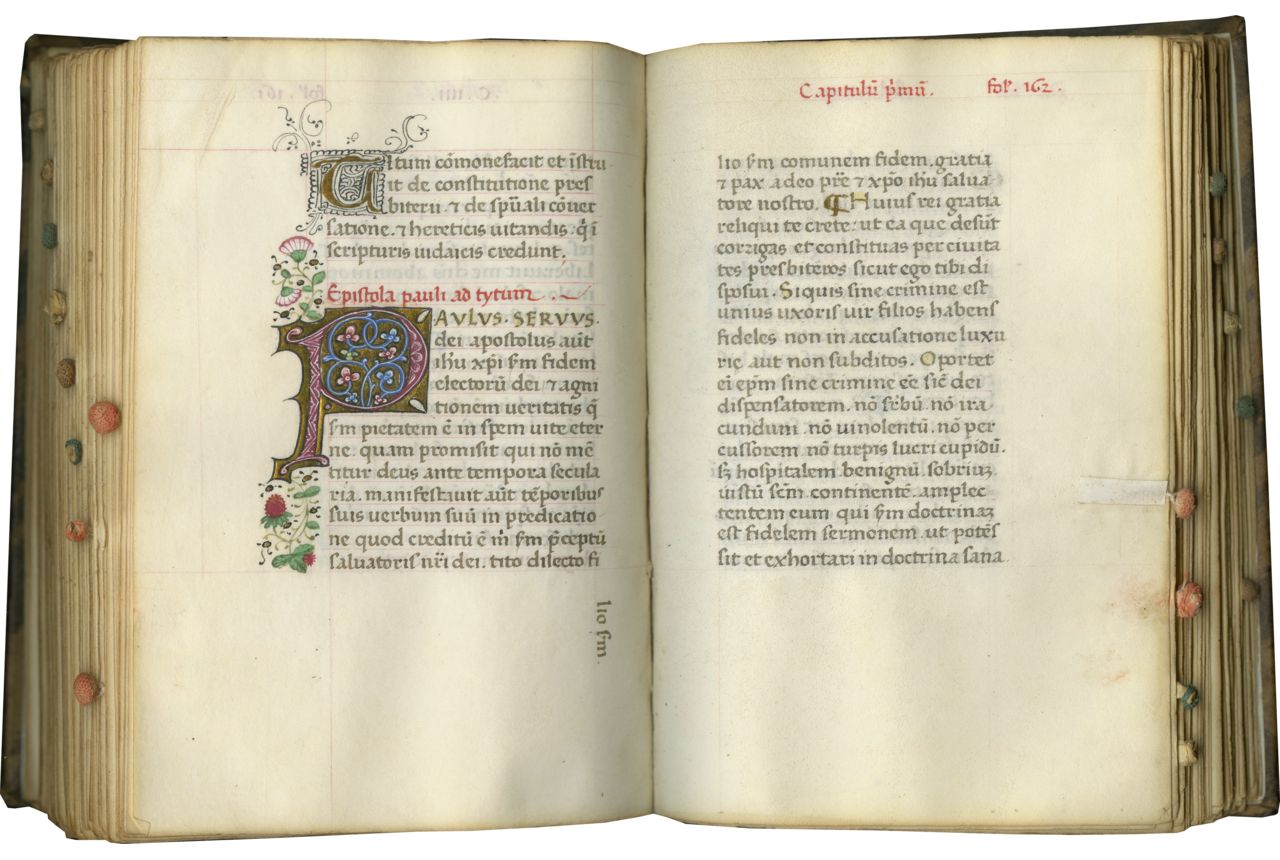 Titum cōmonefacit et īstru
it de constitutione pres
biterii ⁊ de sp̄uali cōuer
satione. ⁊ hereticis uitandis. q̄ i
scripturis iudaicis credunt.
Epistola pauli ad tytum.
PAVLVS. SERVVS.
dei apostolus aūt
ihū xp̄i s̄m fidem
electorū dei ⁊ agni
tionem ueritatis q̄
s̄m pietatem ē in spem uite eter
ne. quam promisit qui nō mē
titur deus ante tempora secula
ria. manifestauit aūt tēporibus
suis uerbum suū in predicatio
ne quod creditū ē m̄ s̄m p̄ceptū
saluatoris nr̄i dei. tito dilecto fi
lio s̄m.
Capitulū p̄mū. fol̄. 162.
lio s̄m comunem fidem. gratia
⁊ pax a deo pr̄e ⁊ xp̄o ihū salua
tore nostro. Huius rei gratia
reliqui te crete: ut ea que desūt
corrigas et constituas per ciuita
tes presbiteros sicut ego tibi di
sposui. Siquis sine crimine est
unius uxoris uir filios habens
fideles non in accusatione luxu
rie aut non subditos. Oportet
ei ēpm sine crimine eē sic̄ dei
dispensatorem. nō srb̄ū. nō ira
cundum. nō uinolentū. nō per
cussorem. nō turpis lucri cupidū.
sꝫ hospitalem benignū sobriuꝫ
uistū sēm continentē. amplec
tentem eum qui s̄m doctrinaꝫ
est fidelem sermonem. ut potēs
sit et exhortari in doctrina sana